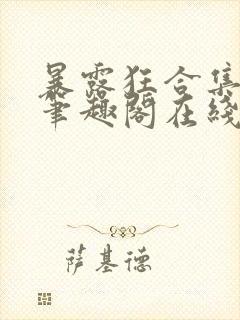 暴露狂合集
笔趣阁在线
萨基德